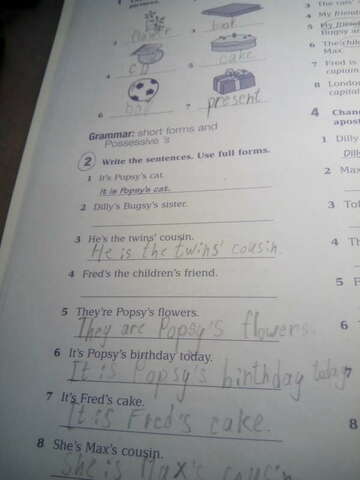 pictures.
1 flower
2 hat
4 cup
5 cake
6 ball
7 present
Grammar: short forms and
Possessive 's
2 Write the sentences. Use full forms.
1 It's Popsy's cat.
It is Popsy's cat.
2 Dilly's Bugsy's sister.
3 He's the twins' cousin.
He is the twins' cousin.
4 Fred's the children's friend.
5 They're Popsy's flowers.
They are Popsy's flowers.
6 It's Popsy's birthday today.
It is Popsy's birthday today
7 It's Fred's cake.
It is Fred's cake.
8 She's Max's cousin.
She is Max's cousin
4 My friend
5 My friend
Bugsy an
6 The chil
Max
7 Fred is
captain
8 London
capital
4 Chan
apost
1 Dilly
Dill
2 Max
3 To
4 Th
5 F
6
7
8